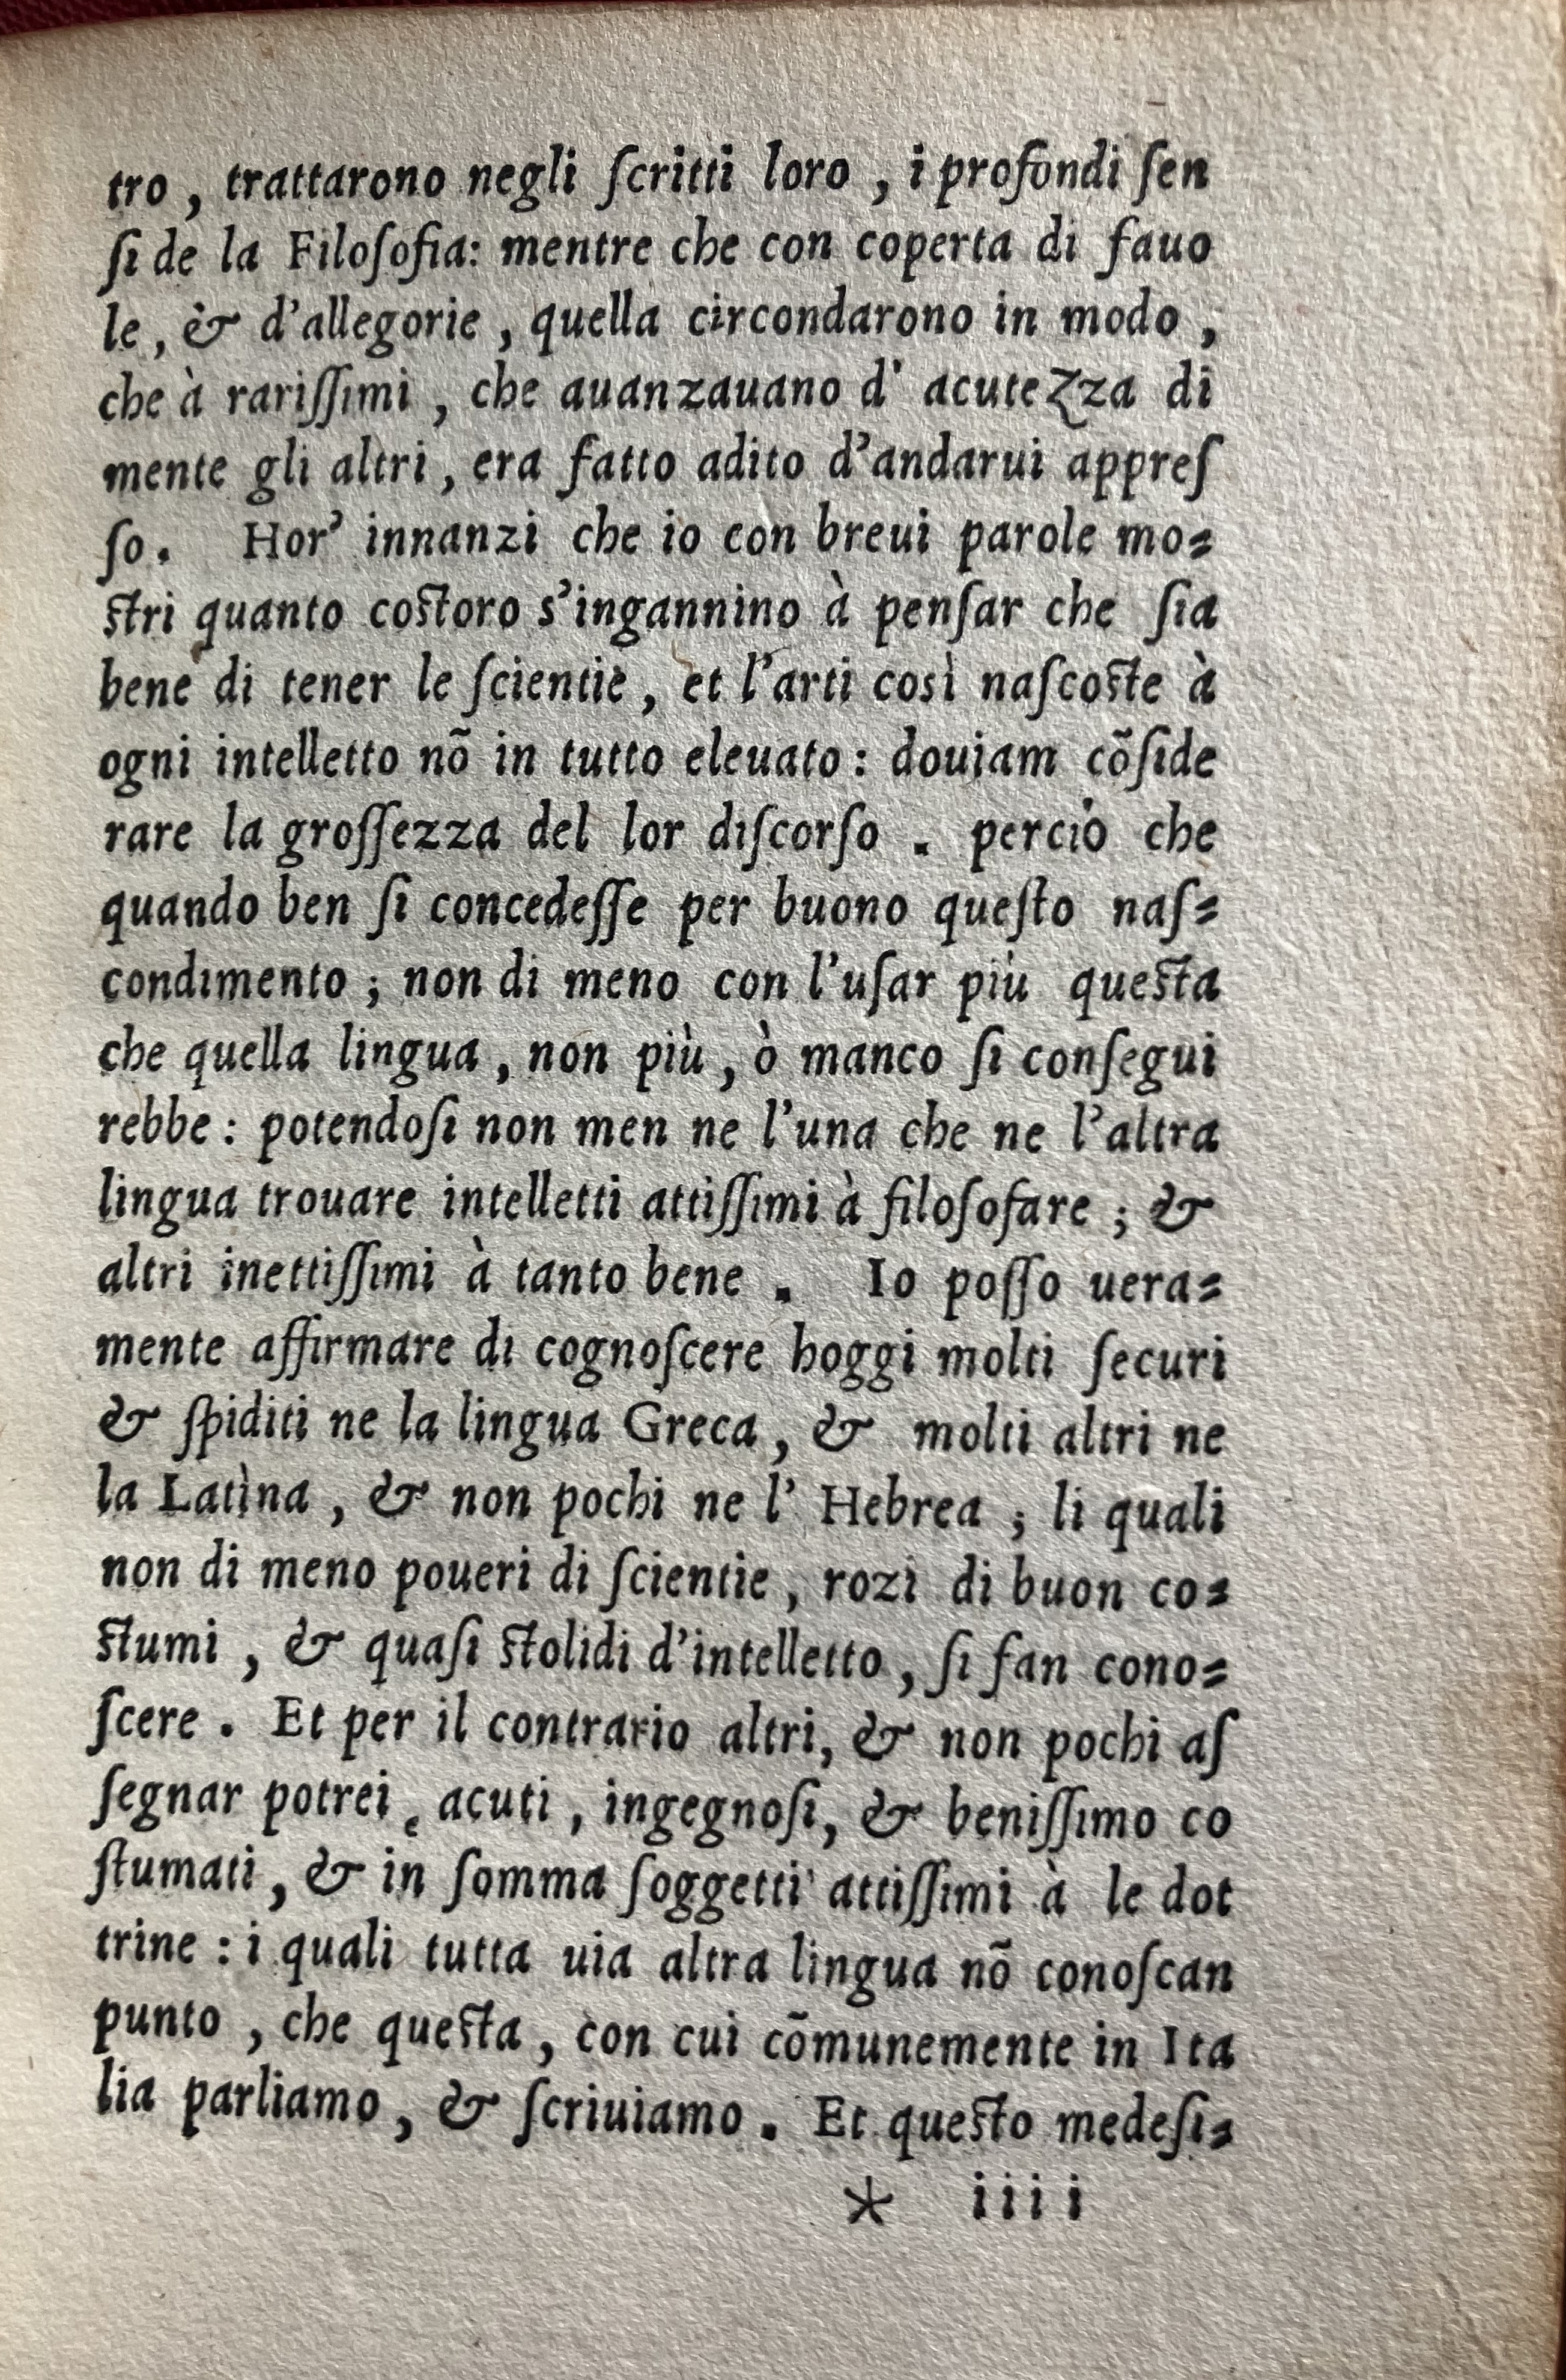 tro, trattarono negli ſcritti loro, i profondi ſen
ſi de la Filoſofia: mentre che con coperta di fauo
le, & d'allegorie, quella circondarono in modo,
che à rariſſimi, che auanzauano d' acutezza di
mente gli altri, era fatto adito d'andarui appreſ
ſo. Hor' innanzi che io con breui parole mo=
ſtri quanto coſtoro s'ingannino à penſar che ſia
bene di tener le ſcientie, et l'arti così naſcoſte à
ogni intelletto nõ in tutto eleuato: douiam cõſide
rare la groſſezza del lor diſcorſo. perciò che
quando ben ſi concedeſſe per buono queſto naſ=
condimento; non di meno con l'uſar più queſta
che quella lingua, non più, ò manco ſi conſegui
rebbe: potendoſi non men ne l'una che ne l'altra
lingua trouare intelletti attiſſimi à filoſofare; &
altri inettiſſimi à tanto bene. Io poſſo uera=
mente affirmare di cognoſcere hoggi molti ſecuri
& ſpiditi ne la lingua Greca, & molti altri ne
la Latìna, & non pochi ne l' Hebrea; li quali
non di meno poueri di ſcientie, rozi di buon co=
ſtumi, & quaſi ſtolidi d'intelletto, ſi fan cono=
ſcere. Et per il contrario altri, & non pochi aſ
ſegnar potrei, acuti, ingegnoſi, & beniſſimo co
ſtumati, & in ſomma ſoggetti attiſſimi à le dot
trine: i quali tutta uia altra lingua nõ conoſcan
punto, che queſta, con cui cõmunemente in Ita
lia parliamo, & ſcriuiamo. Et queſto medeſi=
* iiii